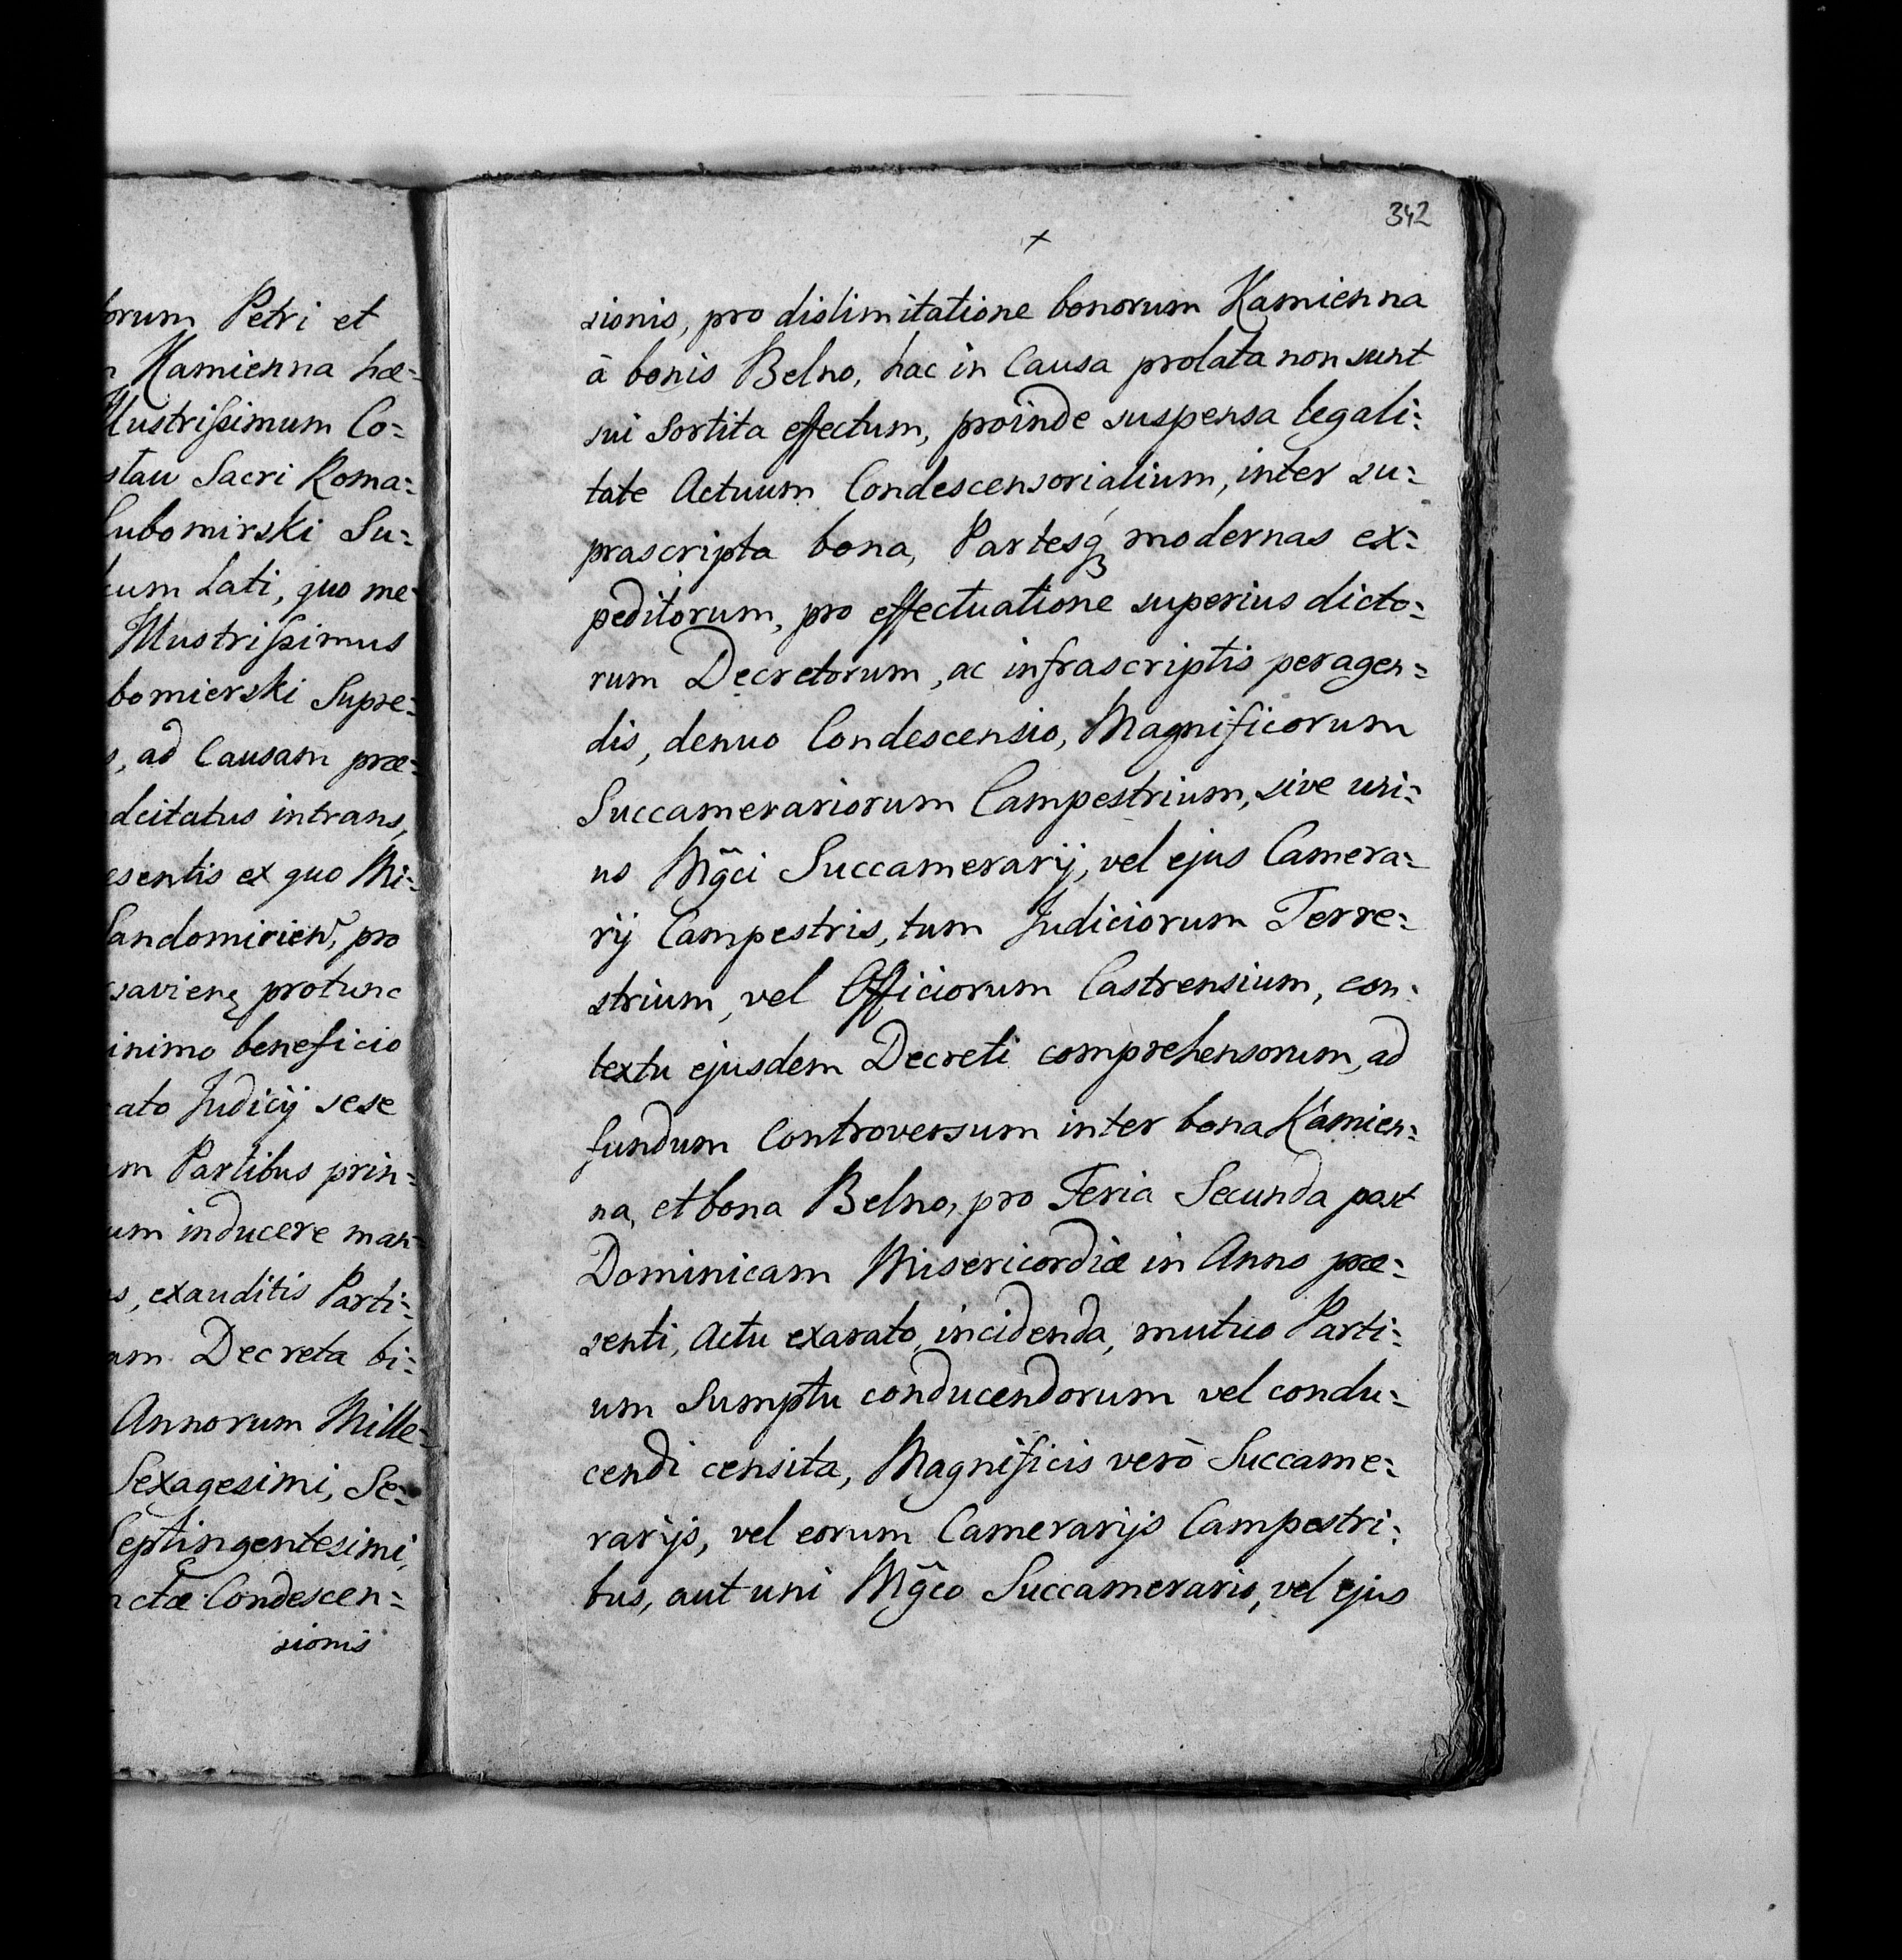 orum Petri et
Kamienna hæ=
llustrissimum Co=
stau Sacri Roma=
Lubomirski Su=
cum Lati, quo me=
Illustrissimus
bomierski Supre=
s, ad Causam præ=
dcitatus intrans,
esentis ex quo Mi=
Sandomirien, pro
savien protunc
inimo beneficio
ato Judicij sese
m Partibus prin=
um inducere man=
s, exauditis Parti=
am Decreta bi=
Annorum Mille=
Sexagesimi, Se=
Septingentesimi,
ctæ Condescen=
sionis
342
x
sionis, pro dislimitatione bonorum Kamienna
à bonis Belno, hac in Causa prolata non sunt
sui Sortita effectum, proinde suspensa legali=
tate Actuum Condescensorialium, inter su=
prascripta bona, Partesq3 modernas ex=
peditorum, pro effectuatione superius dicto=
rum Decretorum, ac infrascriptis peragen=
dis, denuo Condescensio, Magnificorum
Succamerariorum Campestrium, sive uni=
us Mg̃ci Succamerarij, vel ejus Camera=
rij Campestris, tum Judiciorum Terre=
strium, vel Officiorum Castrensium, con=
textu ejusdem Decreti comprehensorum, ad
fundum Controversum inter bona Kamien=
na, et bona Belno, pro Feria Secunda post
Dominicam Misericordiæ in Anno præ=
senti, Actu exarato, incidenda, mutuo Parti=
um Sumptu conducendorum vel condu=
cendi censita, Magnificis verò Succame=
rarijs, vel eorum Camerarijs Campestri=
bus, aut uni Mg̃co Succamerario, vel ejus